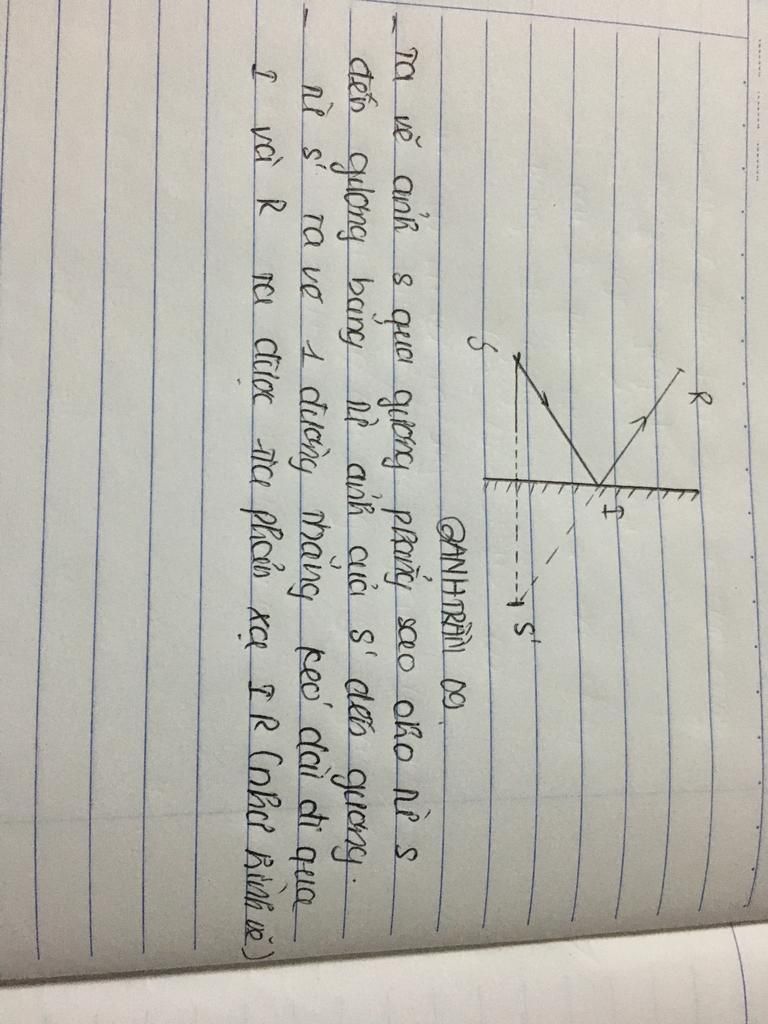 R
S
I
S'
@ANHTRẦM 09.
- Ta vẽ ảnh S qua gương phẳng sao cho từ S
đến gương bằng từ ảnh của S' đến gương.
- từ S' ta vẽ 1 đường thẳng kéo dài đi qua
I và R ta được tia phản xạ IR (như hình vẽ)